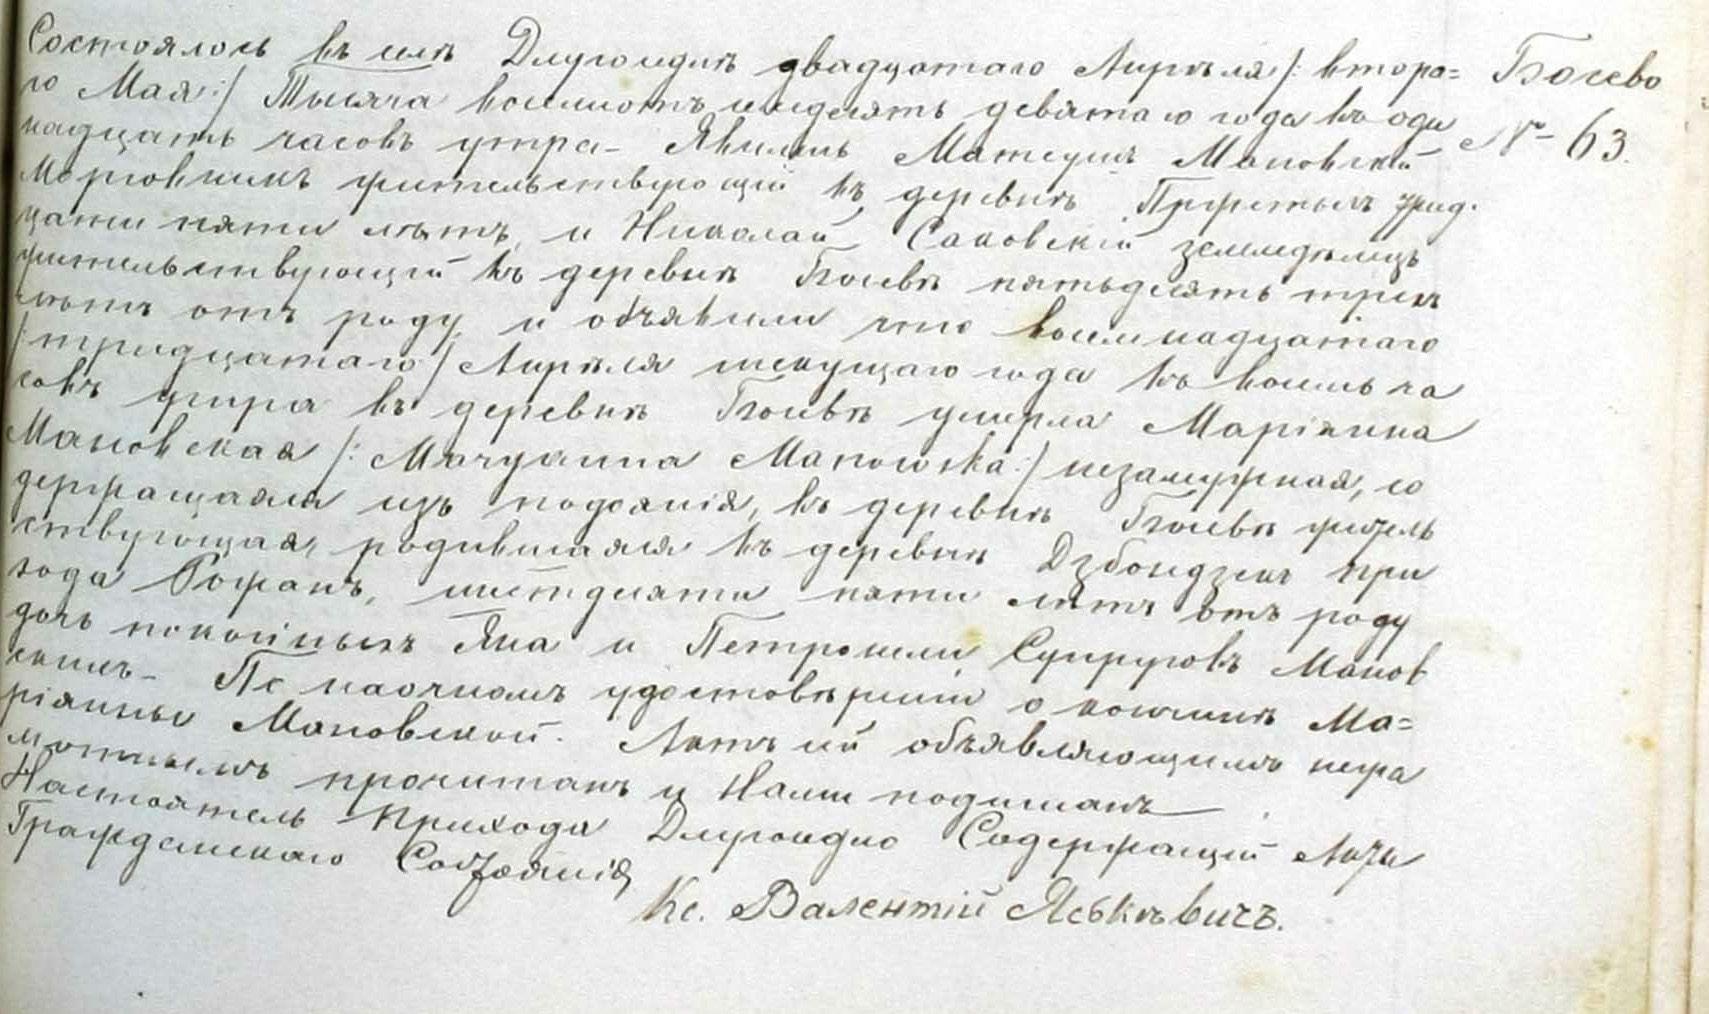 Состоялось въ селѣ Длугоседлѣ двадцатаго Апрѣля /: второ=
го Мая :/ Тысяча восемьсотъ девятаго года въ оди
надцать часовъ утра – Явились Матеушъ Маковскій
жительствующій въ деревнѣ трид-
цати пяти лѣтъ, и Николай Саковскій земледѣлецъ
жительствующій въ деревнѣ пятьдесятъ трехъ
лѣтъ отъ роду и объявили что восемнадцатаго
/ тридцатаго / Апрѣля текущаго года въ восемь ча
совъ утра въ деревнѣ умерла Маріанна
Маковская /: Maryanna Makowska :/ незамужная, со
держащаяся изъ подаянія, въ деревнѣ житель
ствующая, родившаяся въ деревнѣ при
хода Рожанъ, шестдесяти пяти лѣтъ отъ роду
дочь покойныхъ Яна и Петронели Супруговъ Маков
скихъ – По наочномъ удостовѣреніи о кончинѣ Ма=
ріянны Маковской. Актъ сей объявляющимъ негра
мотнымъ прочитанъ и Нами подписанъ
Настоятель Прихода Длугоседло Содержащій Акты
Гражданскаго Состоянія
Кс. Валентій Яськевичъ.
№ 63.